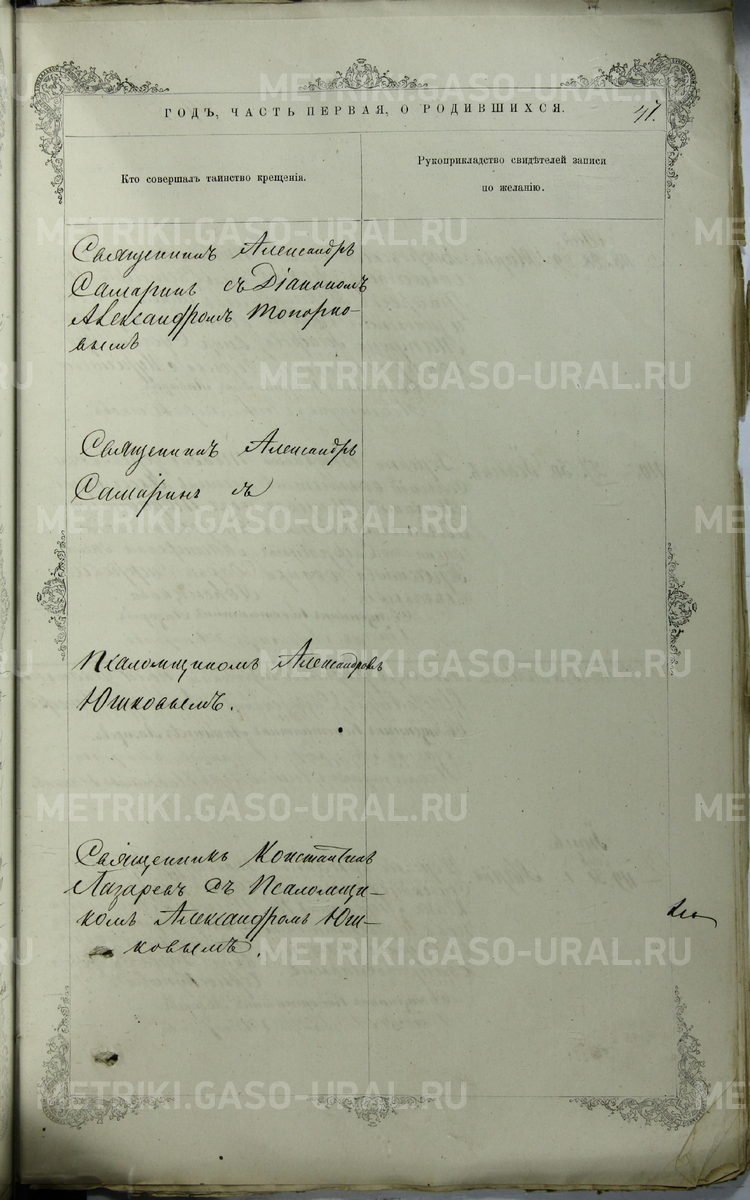 ГОДЪ, ЧАСТЬ ПЕРВАЯ, О РОДИВШИХСЯ.
41.
Кто совершалъ таинство крещенія.
Рукоприкладство свидѣтелей записи
по желанію.
Священникъ Александръ
Самаринъ съ Діакономъ
Александромъ Топорко-
вымъ
Священникъ Александръ
Самаринъ съ
Псаломщикомъ Александромъ
Юшковымъ.
Священникъ Константинъ
Лазаревъ съ Псаломщи-
комъ Александромъ Юш-
ковымъ.
METRIKI.GASO-URAL.RU